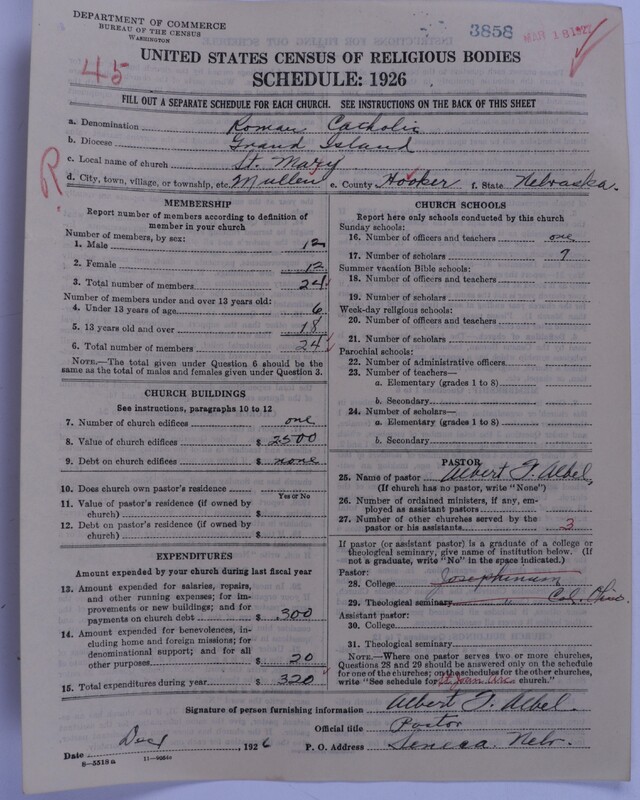 DEPARTMENT OF COMMERCE
BUREAU OF THE CENSUS
WASHINGTON
3858
MAR 18 192
45
UNITED STATES CENSUS OF RELIGIOUS BODIES
SCHEDULE: 1926
FILL OUT A SEPARATE SCHEDULE FOR EACH CHURCH. SEE INSTRUCTIONS ON THE BACK OF THIS SHEET
a. Denomination Roman Catholic
b. Diocese Grand Island
c. Local name of church St. Mary
R
d. City, town, village, or township, etc. Mullen e. County Hooker f. State Nebraska.
MEMBERSHIP
Report number of members according to definition of
member in your church
Number of members, by sex:
1. Male 12
2. Female 12
3. Total number of members 24
Number of members under and over 13 years old:
4. Under 13 years of age 6
5. 13 years old and over 18
6. Total number of members 24
NOTE.—The total given under Question 6 should be the
same as the total of males and females given under Question 3.
CHURCH BUILDINGS
See instructions, paragraphs 10 to 12
7. Number of church edifices one
8. Value of church edifices $ 2500
9. Debt on church edifices $ none
10. Does church own pastor's residence
Yes or No
11. Value of pastor's residence (if owned by
church) $
12. Debt on pastor's residence (if owned by
church) $
EXPENDITURES
Amount expended by your church during last fiscal year
13. Amount expended for salaries, repairs,
and other running expenses; for im-
provements or new buildings; and for
payments on church debt $ 300
14. Amount expended for benevolences, in-
cluding home and foreign missions; for
denominational support; and for all
other purposes $ 20
15. Total expenditures during year $ 320
CHURCH SCHOOLS
Report here only schools conducted by this church
Sunday schools:
16. Number of officers and teachers one
17. Number of scholars 7
Summer vacation Bible schools:
18. Number of officers and teachers
19. Number of scholars
Week-day religious schools:
20. Number of officers and teachers
21. Number of scholars
Parochial schools:
22. Number of administrative officers
23. Number of teachers—
a. Elementary (grades 1 to 8)
b. Secondary
24. Number of scholars—
a. Elementary (grades 1 to 8)
b. Secondary
PASTOR
25. Name of pastor Albert T. Albel
(If church has no pastor, write "None")
26. Number of ordained ministers, if any, em-
ployed as assistant pastors
27. Number of other churches served by the
pastor or his assistants 3
If pastor (or assistant pastor) is a graduate of a college or
theological seminary, give name of institution below. (If
not a graduate, write "No" in the space indicated.)
Pastor:
28. College Josephinum
29. Theological seminary " Col. Ohio.
Assistant pastor:
30. College
31. Theological seminary
NOTE.—Where one pastor serves two or more churches,
Questions 28 and 29 should be answered only on the schedule
for one of the churches; on the schedules for the other churches,
write "See schedule for church."
Signature of person furnishing information Albert T. Albel
Official title Pastor
Date Dec 1, 1926 P. O. Address Seneca, Nebr.
8—5519a 11—9054